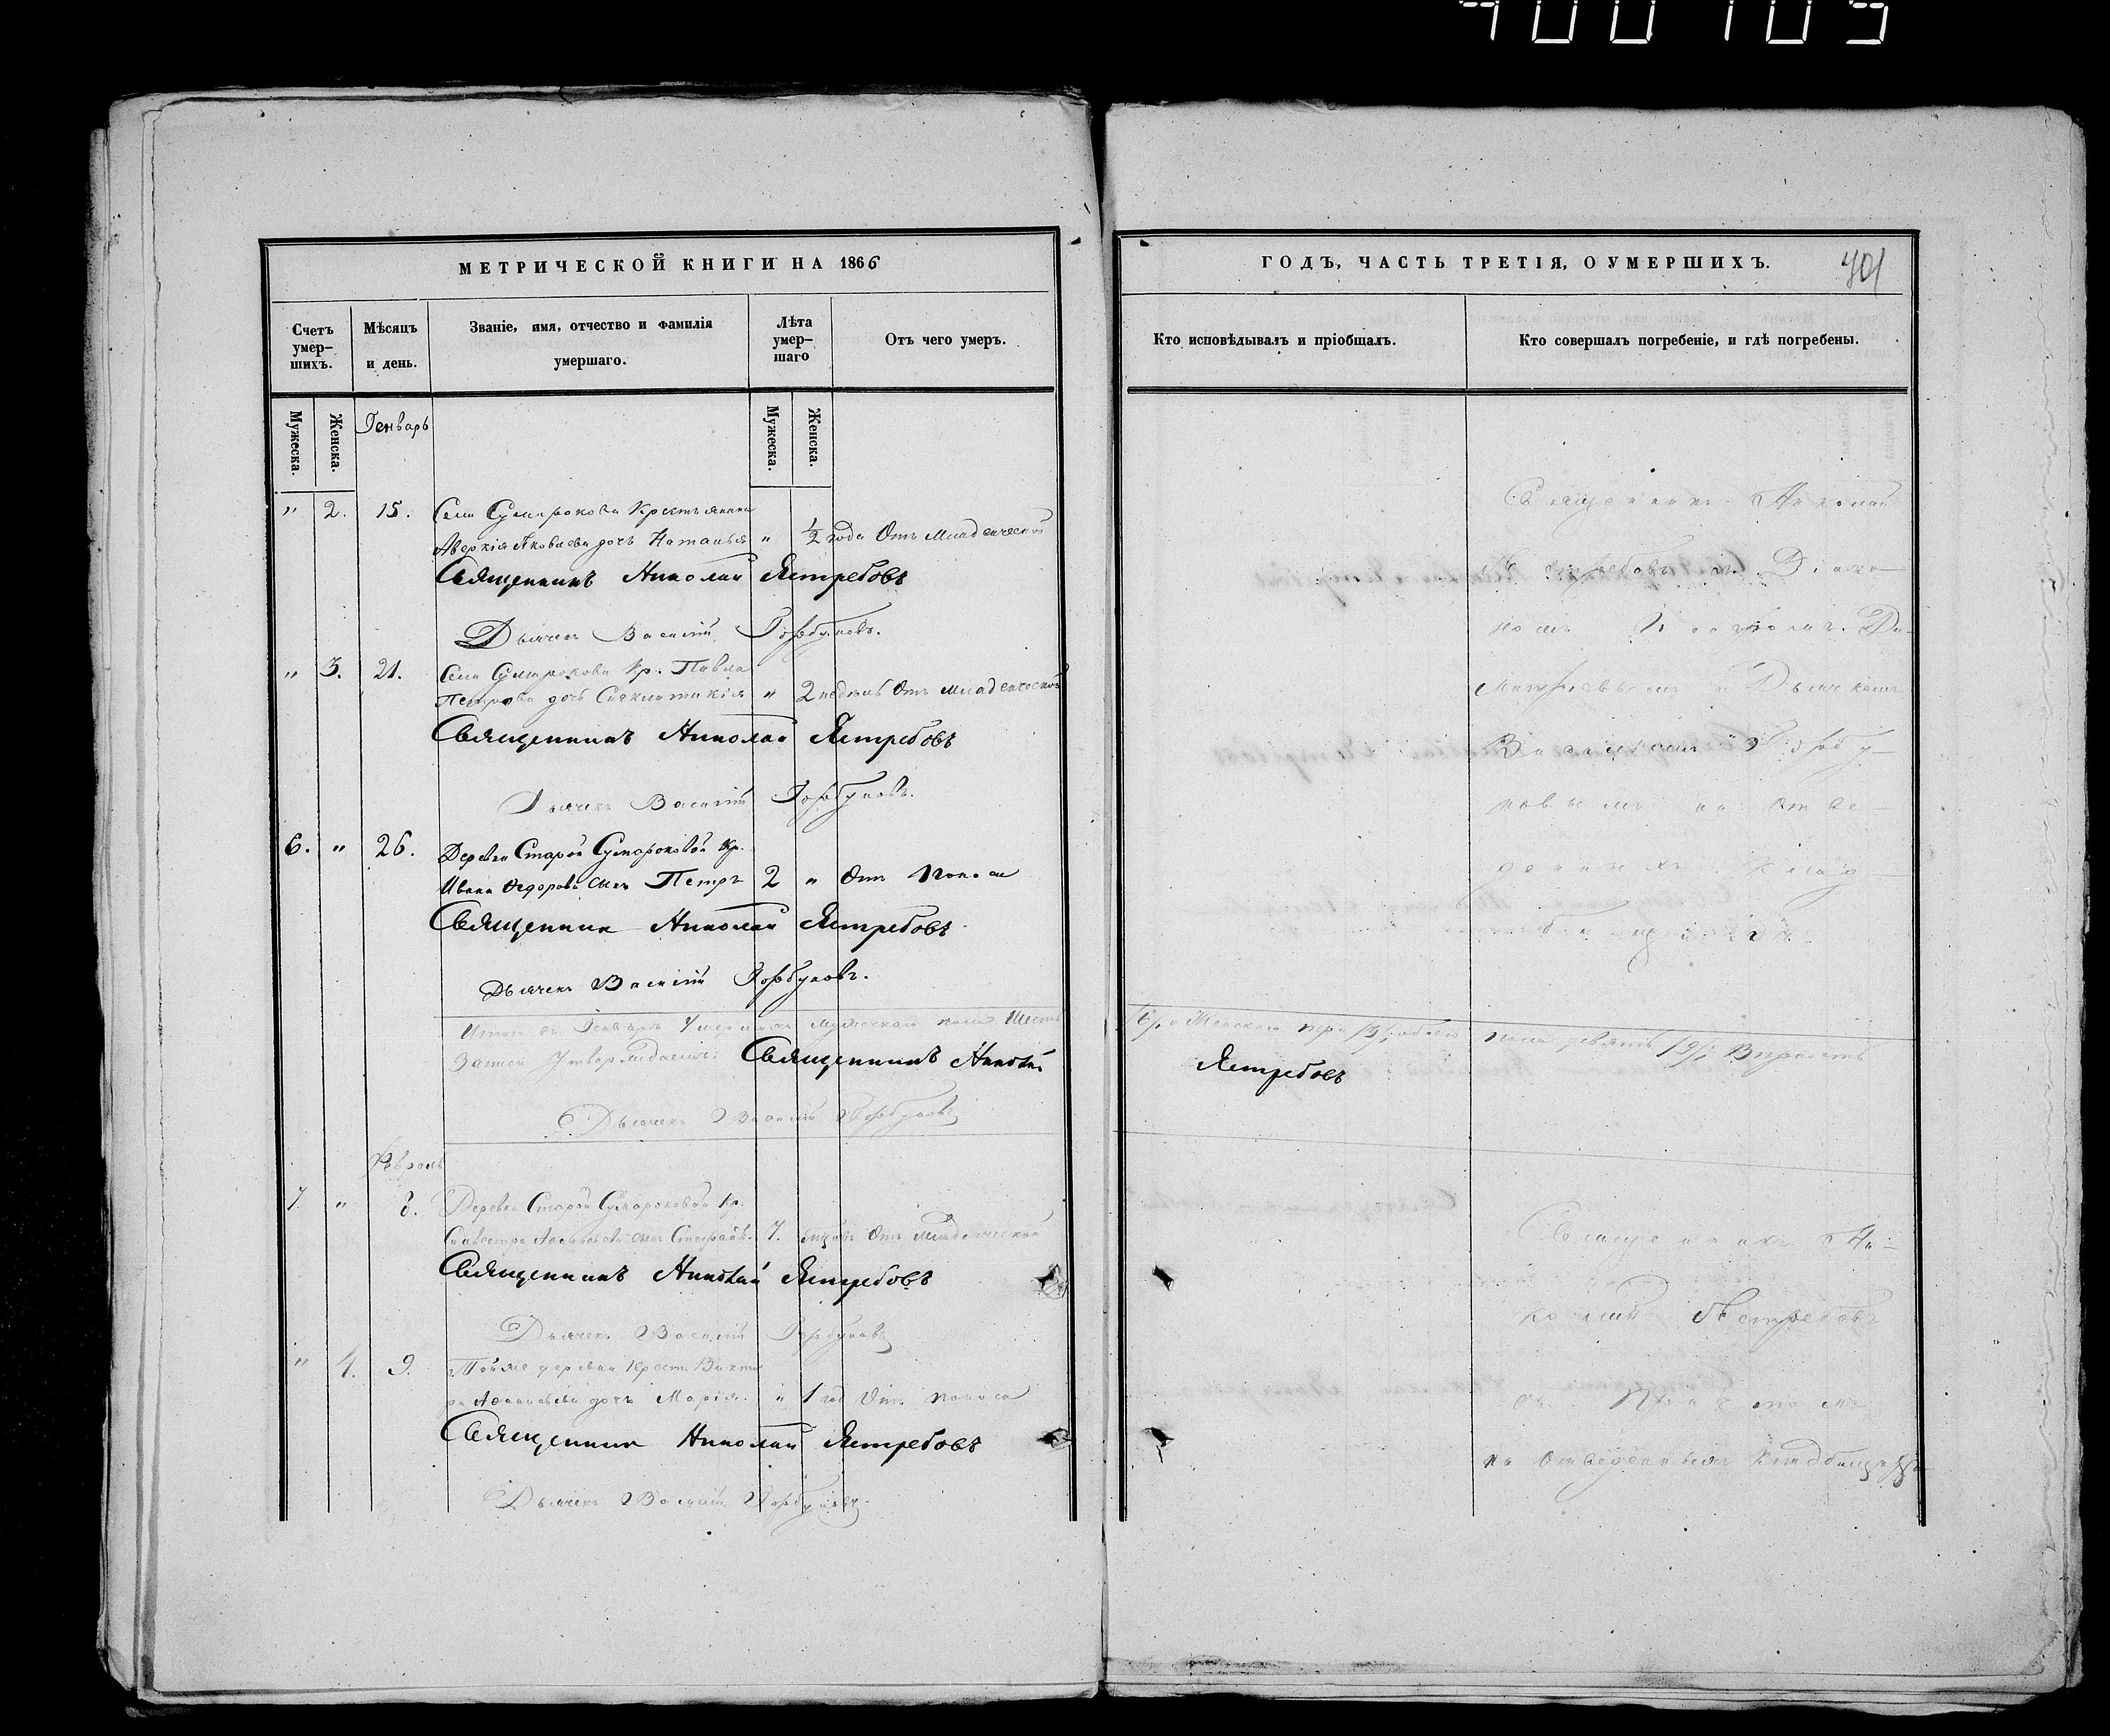 400103
МЕТРИЧЕСКОЙ КНИГИ НА 1866
Счетъ умер-
шихъ.
Мѣсяцъ
и день.
Званіе, имя, отчество и фамилія
умершаго.
Лѣта
умер-
шаго
Отъ чего умеръ.
Мужеска.
Женска.
Генварь
Мужеска.
Женска.
" 2. 15. Села Сумарокова Крестьянина
Аверкія Яковлева дочь Наталья " ½ года Отъ Младенческой
Священникъ Николай Ястребовъ
Дьячекъ Василій Горбуновъ.
" 3. 21. Села Сумарокова Кр. Павла
Петрова дочь Синклитикія " 2 недѣль Отъ Младенческой
Священникъ Николай Ястребовъ
Дьячекъ Василій Горбуновъ.
6. " 26. Деревни Старой Сумароковой Кр.
Ивана Ѳедорова сынъ Петръ 2 " Отъ Поноса
Священникъ Николай Ястребовъ
Дьячекъ Василій Горбуновъ.
Итого въ Генварѣ Умершихъ мужескаго пола Шесть
Записи Утверждаемъ: Священникъ Николай
Дьячекъ Василій Горбуновъ
Февраль
7. " 8. Деревни Старой Сумароковой Кр.
сынъ 7. Отъ Младенческой
Священникъ Николай Ястребовъ
Дьячекъ Василій Горбуновъ
" 4. 9. Той же деревни Крест. Викто
ра дочь Марія. " 1 год Отъ поноса
Священникъ Николай Ястребовъ
Дьячекъ Василій Горбуновъ.
ГОДЪ, ЧАСТЬ ТРЕТІЯ, О УМЕРШИХЪ.
401
Кто исповѣдывалъ и пріобщалъ.
Кто совершалъ погребеніе, и гдѣ погребены.
Священникъ Николай
Ястребовъ съ Діако-
номъ Ди-
Дьячкомъ
Василіемъ Горбу-
новымъ на отве-
денномъ Клад-
бищѣ
/6/, а Женскаго три /3/, обоего пола девять /9/; Вѣрность
Ястребовъ
Священникъ Ни-
колай Ястребовъ
съ Причтомъ
на Отведенномъ Кладбищѣ